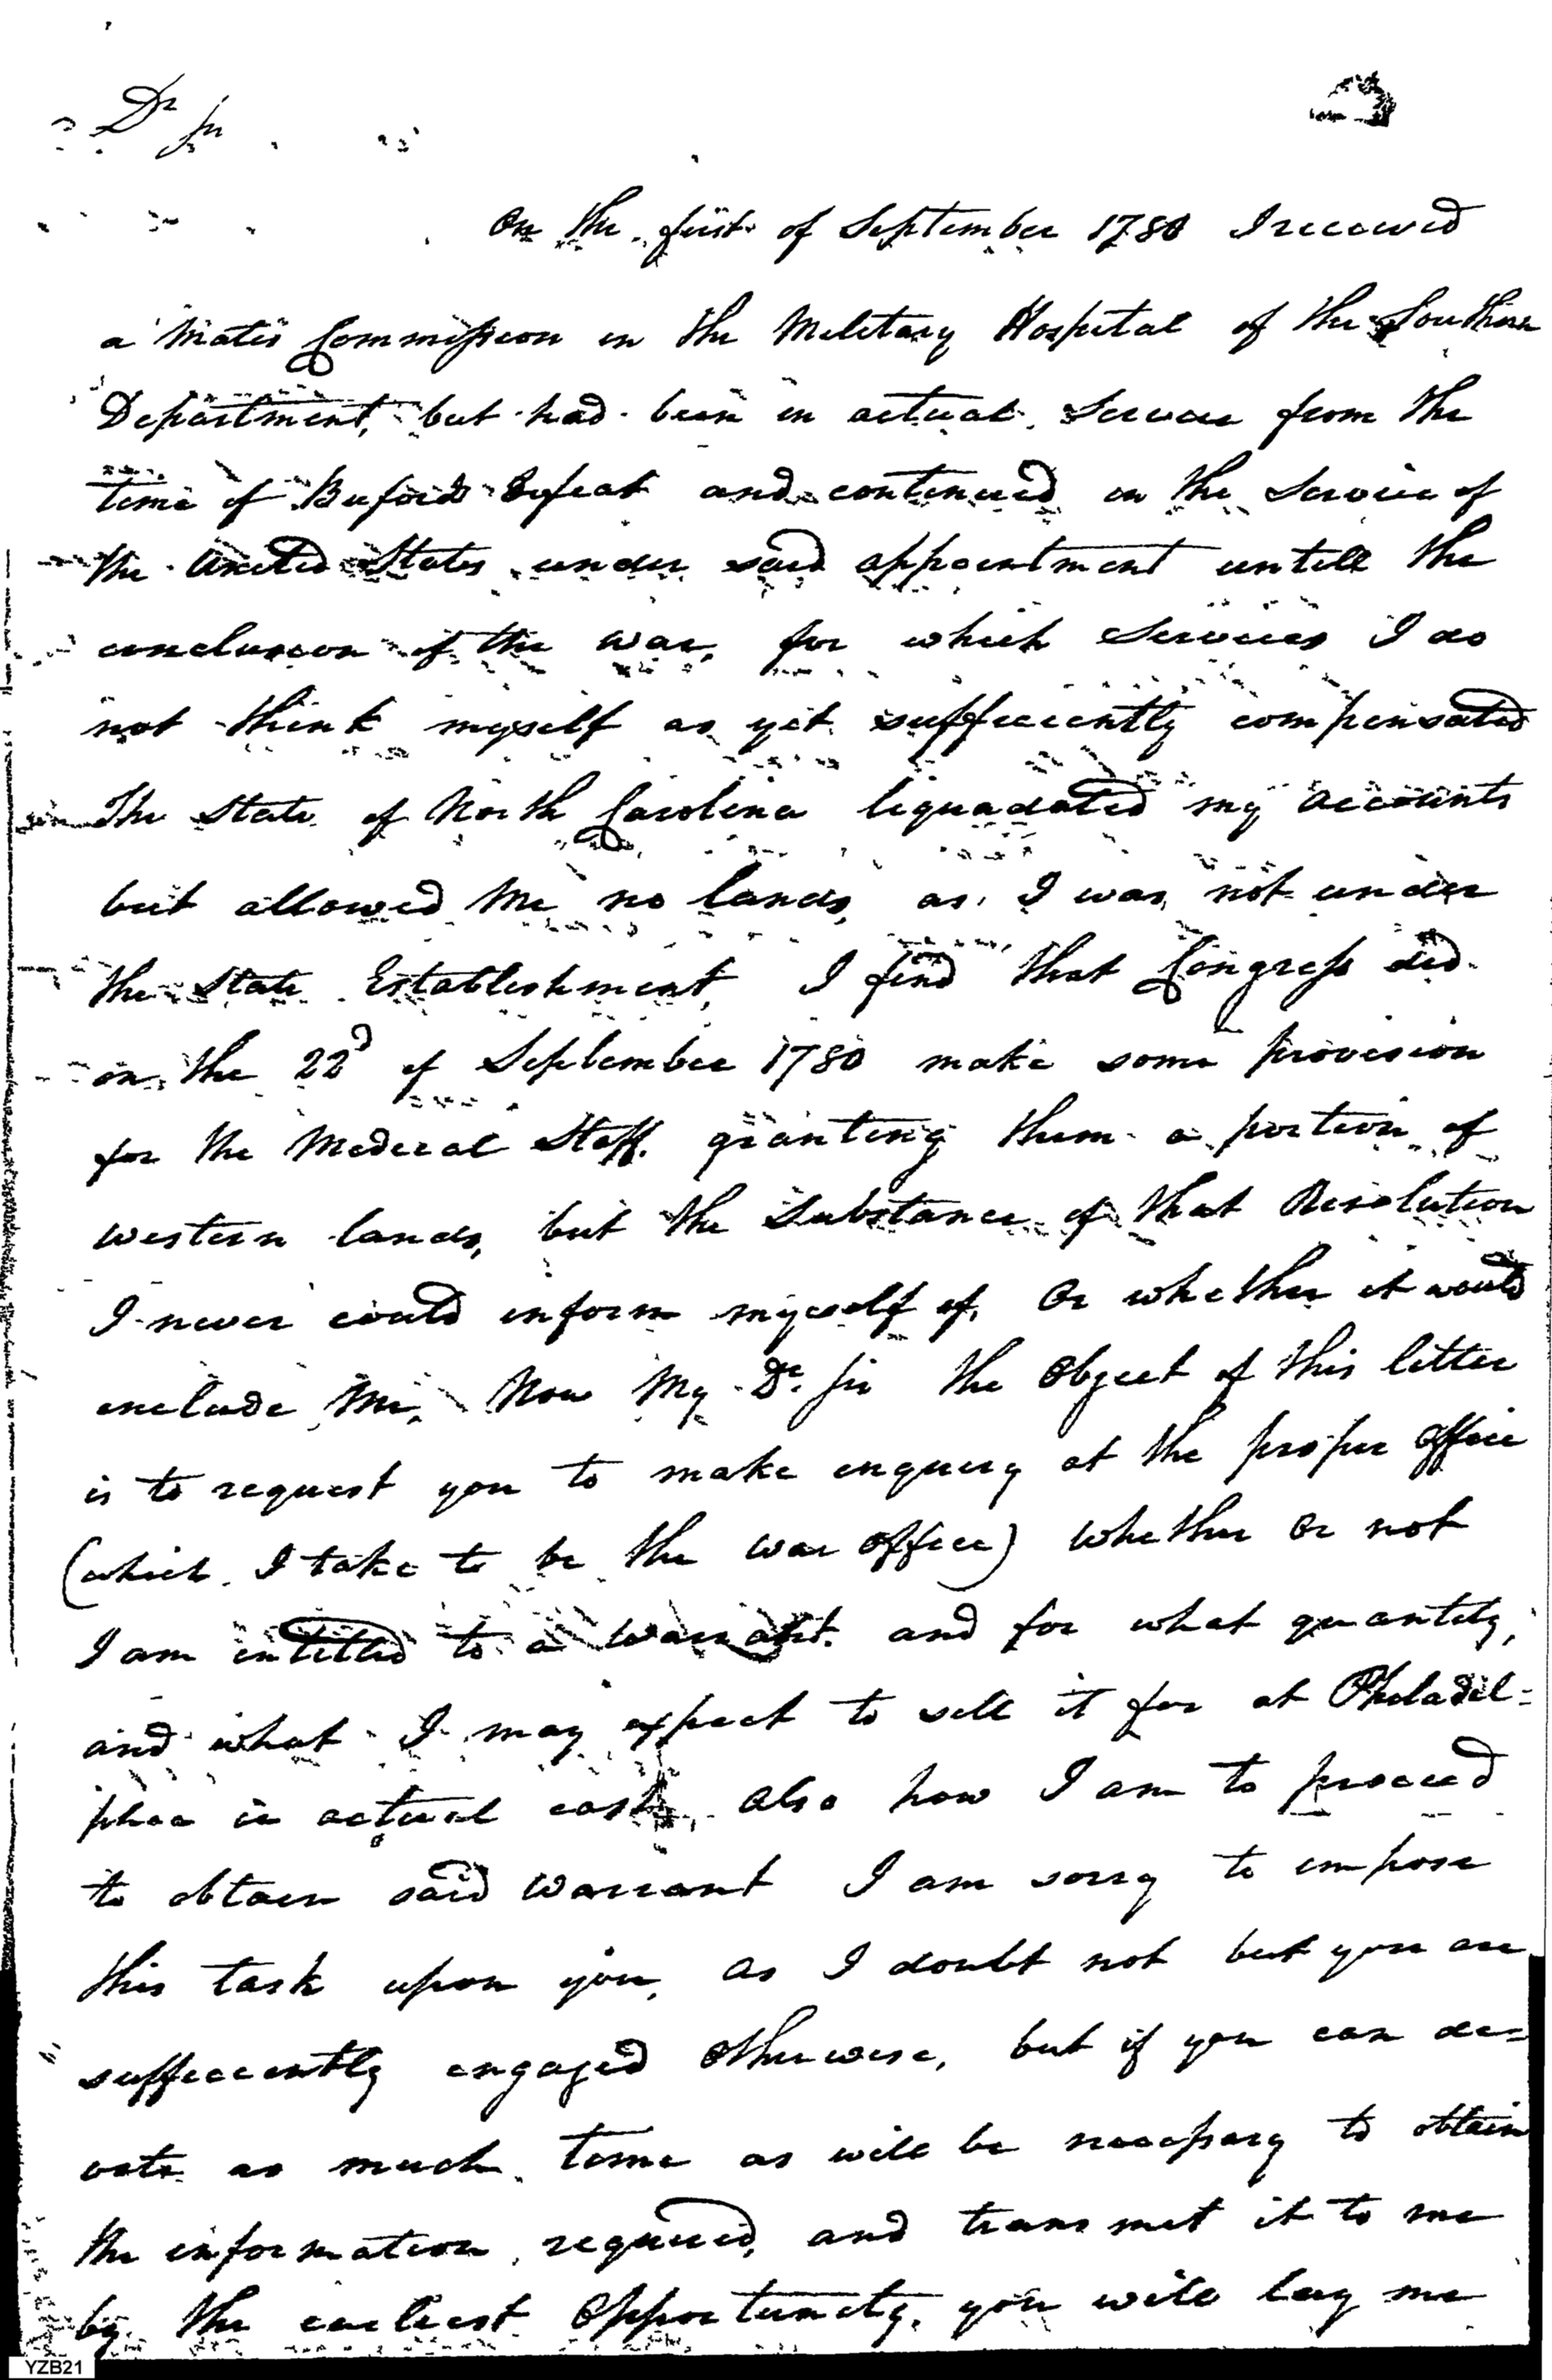 Dr Sir
On the first of September 1780 I received
a Mates Commission in the Military Hospital of the Southern
Department, but had been in actual Service from the
time of Bufords Defeat and continued in the Service of
the United States under said appointment untill the
conclusion of the war, for which Services I do
not think myself as yet sufficiently compensated
The State of North Carolina liquadated my accounts
but allowed me no lands, as I was not under
the State Establishment, I find that Congress did
on the 22d of September 1780 make some provision
for the Medical Staff, granting them a portion of
western lands, but the Substance of that Resolution
I never could inform myself of, or whether it would
include me, Now My Dr. Sir the Object of this letter
is to request you to make enquiry at the proper office
(which I take to be the war office) whether or not
I am intitled to a warrant and for what quantity,
and what I may expect to sell it for at Philadel=
phia in actual cash, also how I am to proceed
to obtain said warrant I am sorry to impose
this task upon you, as I doubt not but you are
sufficiently engaged otherwise, but if you can de=
vote as much time as will be necessary to obtain
the information required, and transmit it to me
by the earliest Opportunity, you will lay me
YZB21